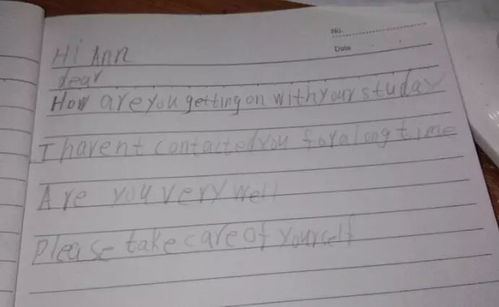 No.
Date
Hi Ann
dear
How are you getting on with your studay
I havent contacted you for a long time
Are you very well
Please take care of yourself